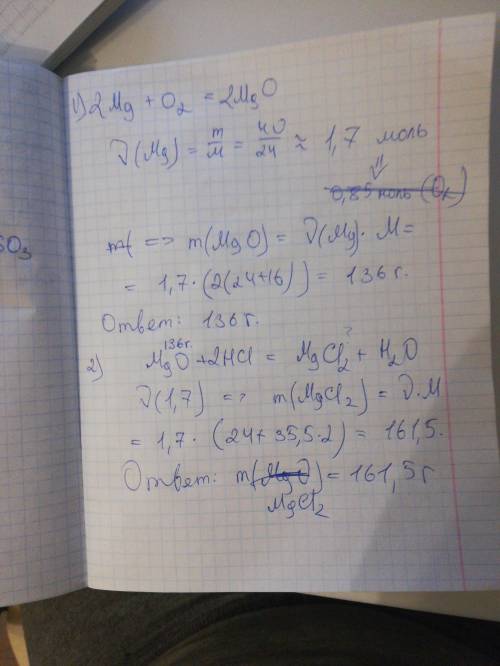 1) 2Mg + O₂ = 2MgO
ν(Mg) = m/M = 40/24 ≈ 1,7 моль
⇓
0,85 моль (O₂)
SO₃
m( => m(MgO) = ν(Mg) · M =
= 1,7 · (2(24+16)) = 136 г.
Ответ: 136 г.
136 г. ?
2) MgO + 2HCl = MgCl₂ + H₂O
ν(1,7) => m(MgCl₂) = ν · M
= 1,7 · (24 + 35,5 · 2) = 161,5.
Ответ: m(MgO) = 161,5 г
MgCl₂